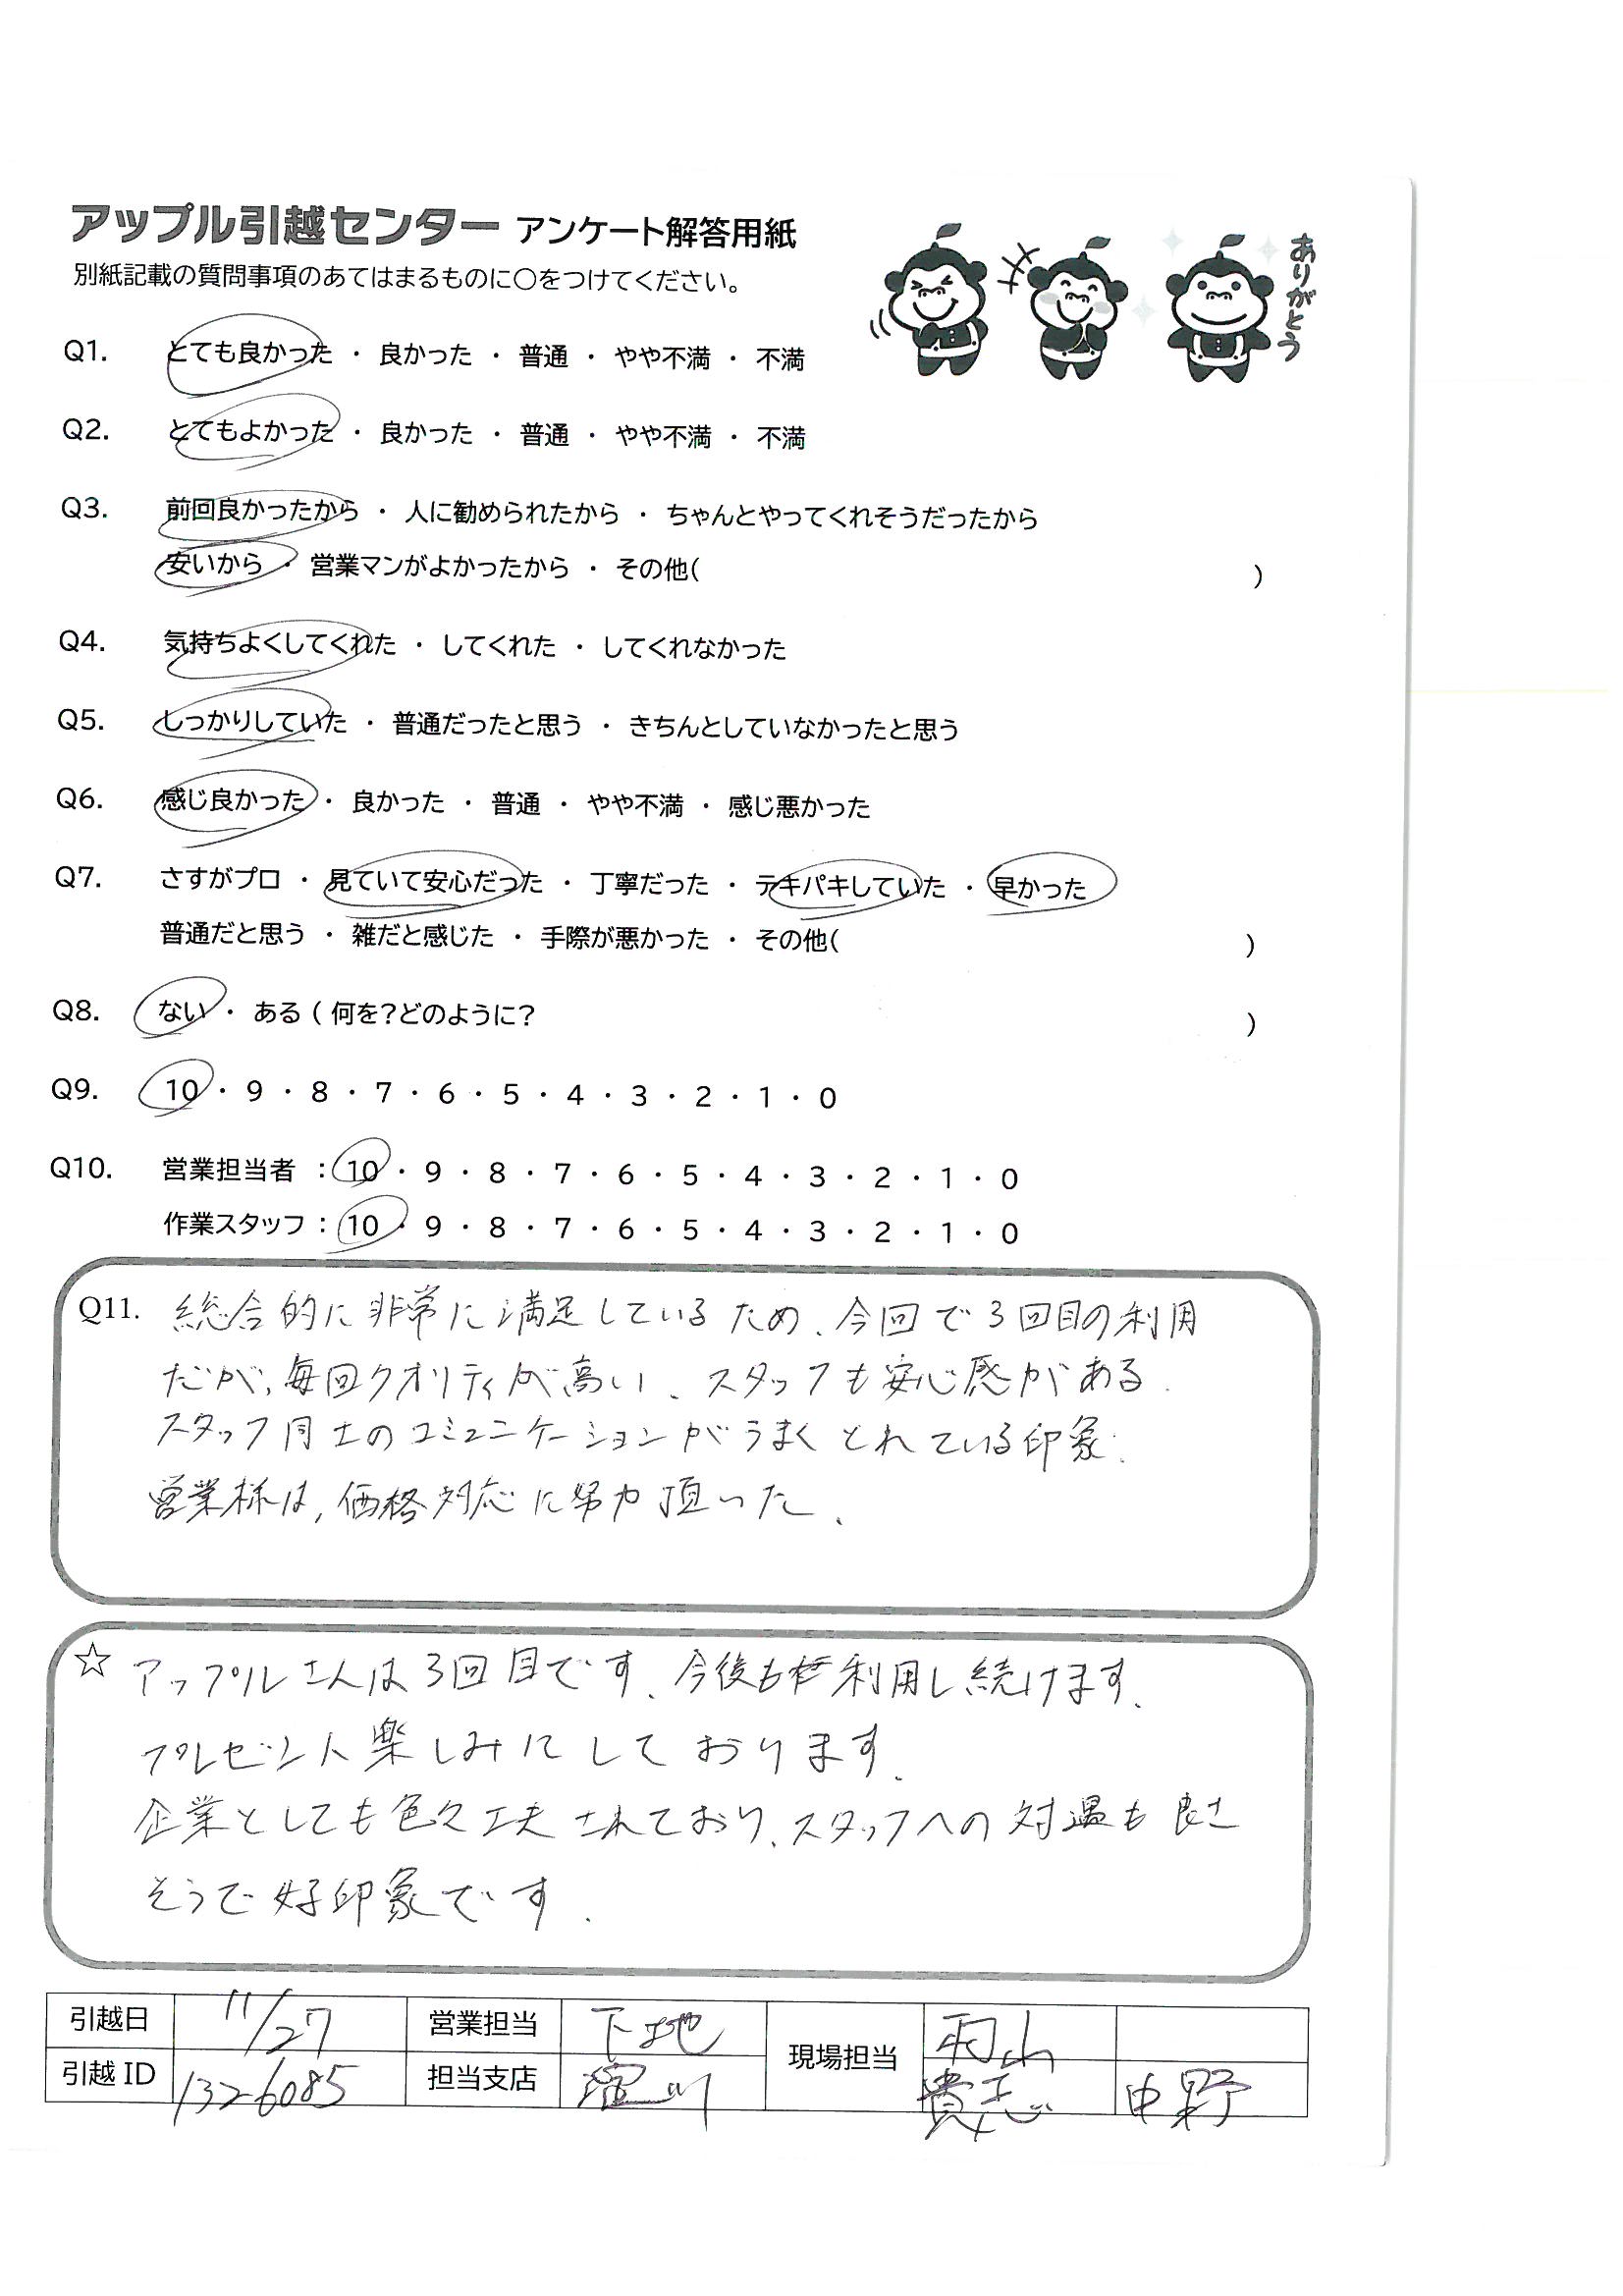 アップル引越センター アンケート解答用紙
別紙記載の質問事項のあてはまるものに○をつけてください。
ありがとう
Q1. とても良かった ・ 良かった ・ 普通 ・ やや不満 ・ 不満
Q2. とてもよかった ・ 良かった ・ 普通 ・ やや不満 ・ 不満
Q3. 前回良かったから ・ 人に勧められたから ・ ちゃんとやってくれそうだったから
安いから ・ 営業マンがよかったから ・ その他( )
Q4. 気持ちよくしてくれた ・ してくれた ・ してくれなかった
Q5. しっかりしていた ・ 普通だったと思う ・ きちんとしていなかったと思う
Q6. 感じ良かった ・ 良かった ・ 普通 ・ やや不満 ・ 感じ悪かった
Q7. さすがプロ ・ 見ていて安心だった ・ 丁寧だった ・ テキパキしていた ・ 早かった
普通だと思う ・ 雑だと感じた ・ 手際が悪かった ・ その他( )
Q8. ない ・ ある ( 何を?どのように? )
Q9. 10 ・ 9 ・ 8 ・ 7 ・ 6 ・ 5 ・ 4 ・ 3 ・ 2 ・ 1 ・ 0
Q10. 営業担当者 : 10 ・ 9 ・ 8 ・ 7 ・ 6 ・ 5 ・ 4 ・ 3 ・ 2 ・ 1 ・ 0
作業スタッフ : 10 ・ 9 ・ 8 ・ 7 ・ 6 ・ 5 ・ 4 ・ 3 ・ 2 ・ 1 ・ 0
Q11. 総合的に非常に満足しているため、今回で3回目の利用
だが、毎回クオリティが高い、スタッフも安心感がある.
スタッフ同士のコミュニケーションがうまくとれている印象.
営業様は, 価格対応に努力頂いた、
☆ アップルさんは3回目です、今後も利用し続けます、
プレゼント楽しみにしております、
企業としても色々工夫されており、スタッフへの対遇も良さ
そうで好印象です.
引越日 11/27 営業担当 下地 現場担当 山
引越 ID 132-6085 担当支店 貴志 中野